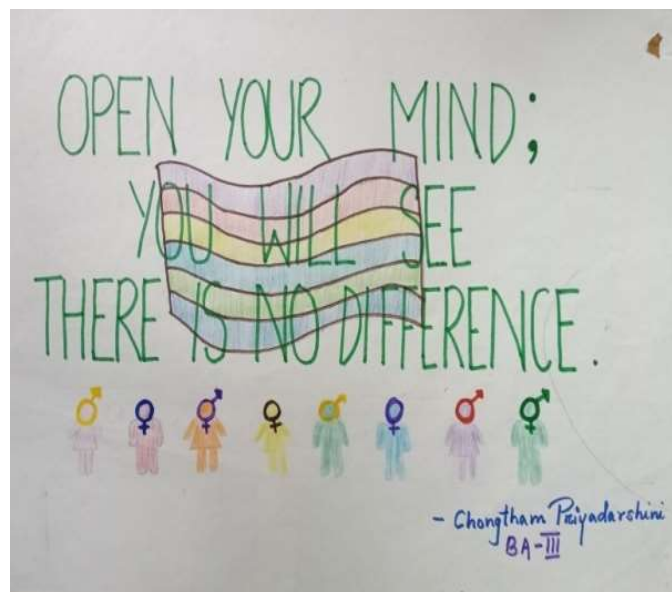 OPEN YOUR MIND;
YOU WILL SEE
THERE IS NO DIFFERENCE.
- Chongtham Priyadarshini
BA-III